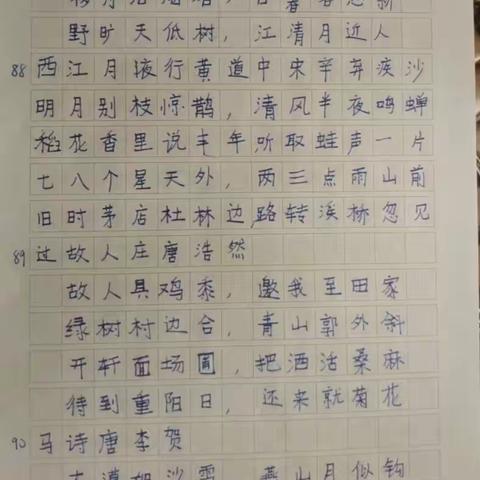 野旷天低树，江清月近人
88 西江月液行黄道中宋辛弃疾沙
明月别枝惊鹊，清风半夜鸣蝉
稻花香里说丰年听取蛙声一片
七八个星天外，两三点雨山前
旧时茅店杜林边路转溪桥忽见
89 过故人庄唐浩然
故人具鸡黍，邀我至田家
绿树村边合，青山郭外斜
开轩面场圃，把酒话桑麻
待到重阳日，还来就菊花
90 马诗唐李贺
大漠如沙雪，燕山月似钩